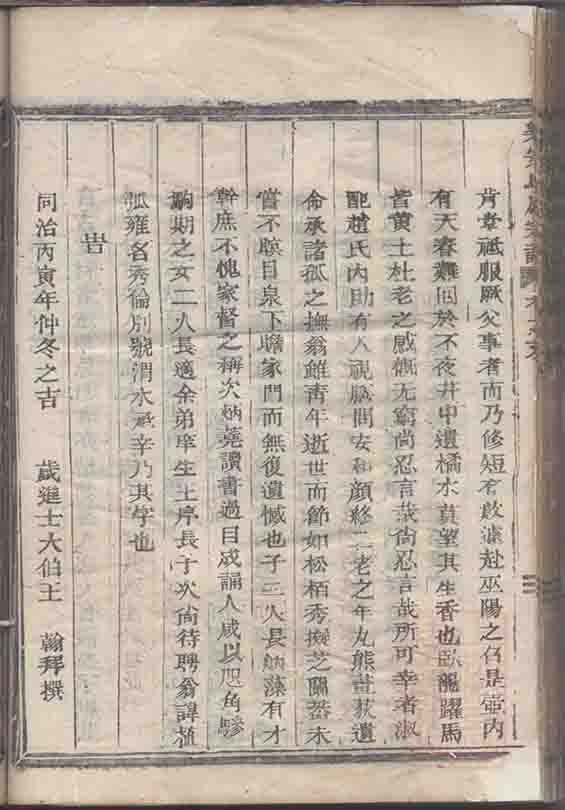 肯堂祗服厥父事者而乃修短有數遽赴巫陽之召是壺內
有天春難回於不夜井中遺橘水莫望其生香也臥龍躍馬
皆黃土杜老之感慨无窮尚忍言哉尚忍言哉所可幸者淑
配趙氏內助有人視膳問安和顏終二老之年丸熊畫荻遺
命承諸孤之撫翁雖靑年逝世而節如松栢秀擬芝蘭當未
嘗不瞑目泉下瞻家門而無復遺憾也子二人長炳藻有才
幹庶不愧家督之稱次炳蕘讀書過目成誦人咸以咫角驂
駒期之女二人長適余弟庠生土序長子次尚待聘翁諱植
弧雍名秀倫別號渭水承辛乃其字也
旹
同治丙寅年仲冬之吉 歲進士大伯王 翰拜撰